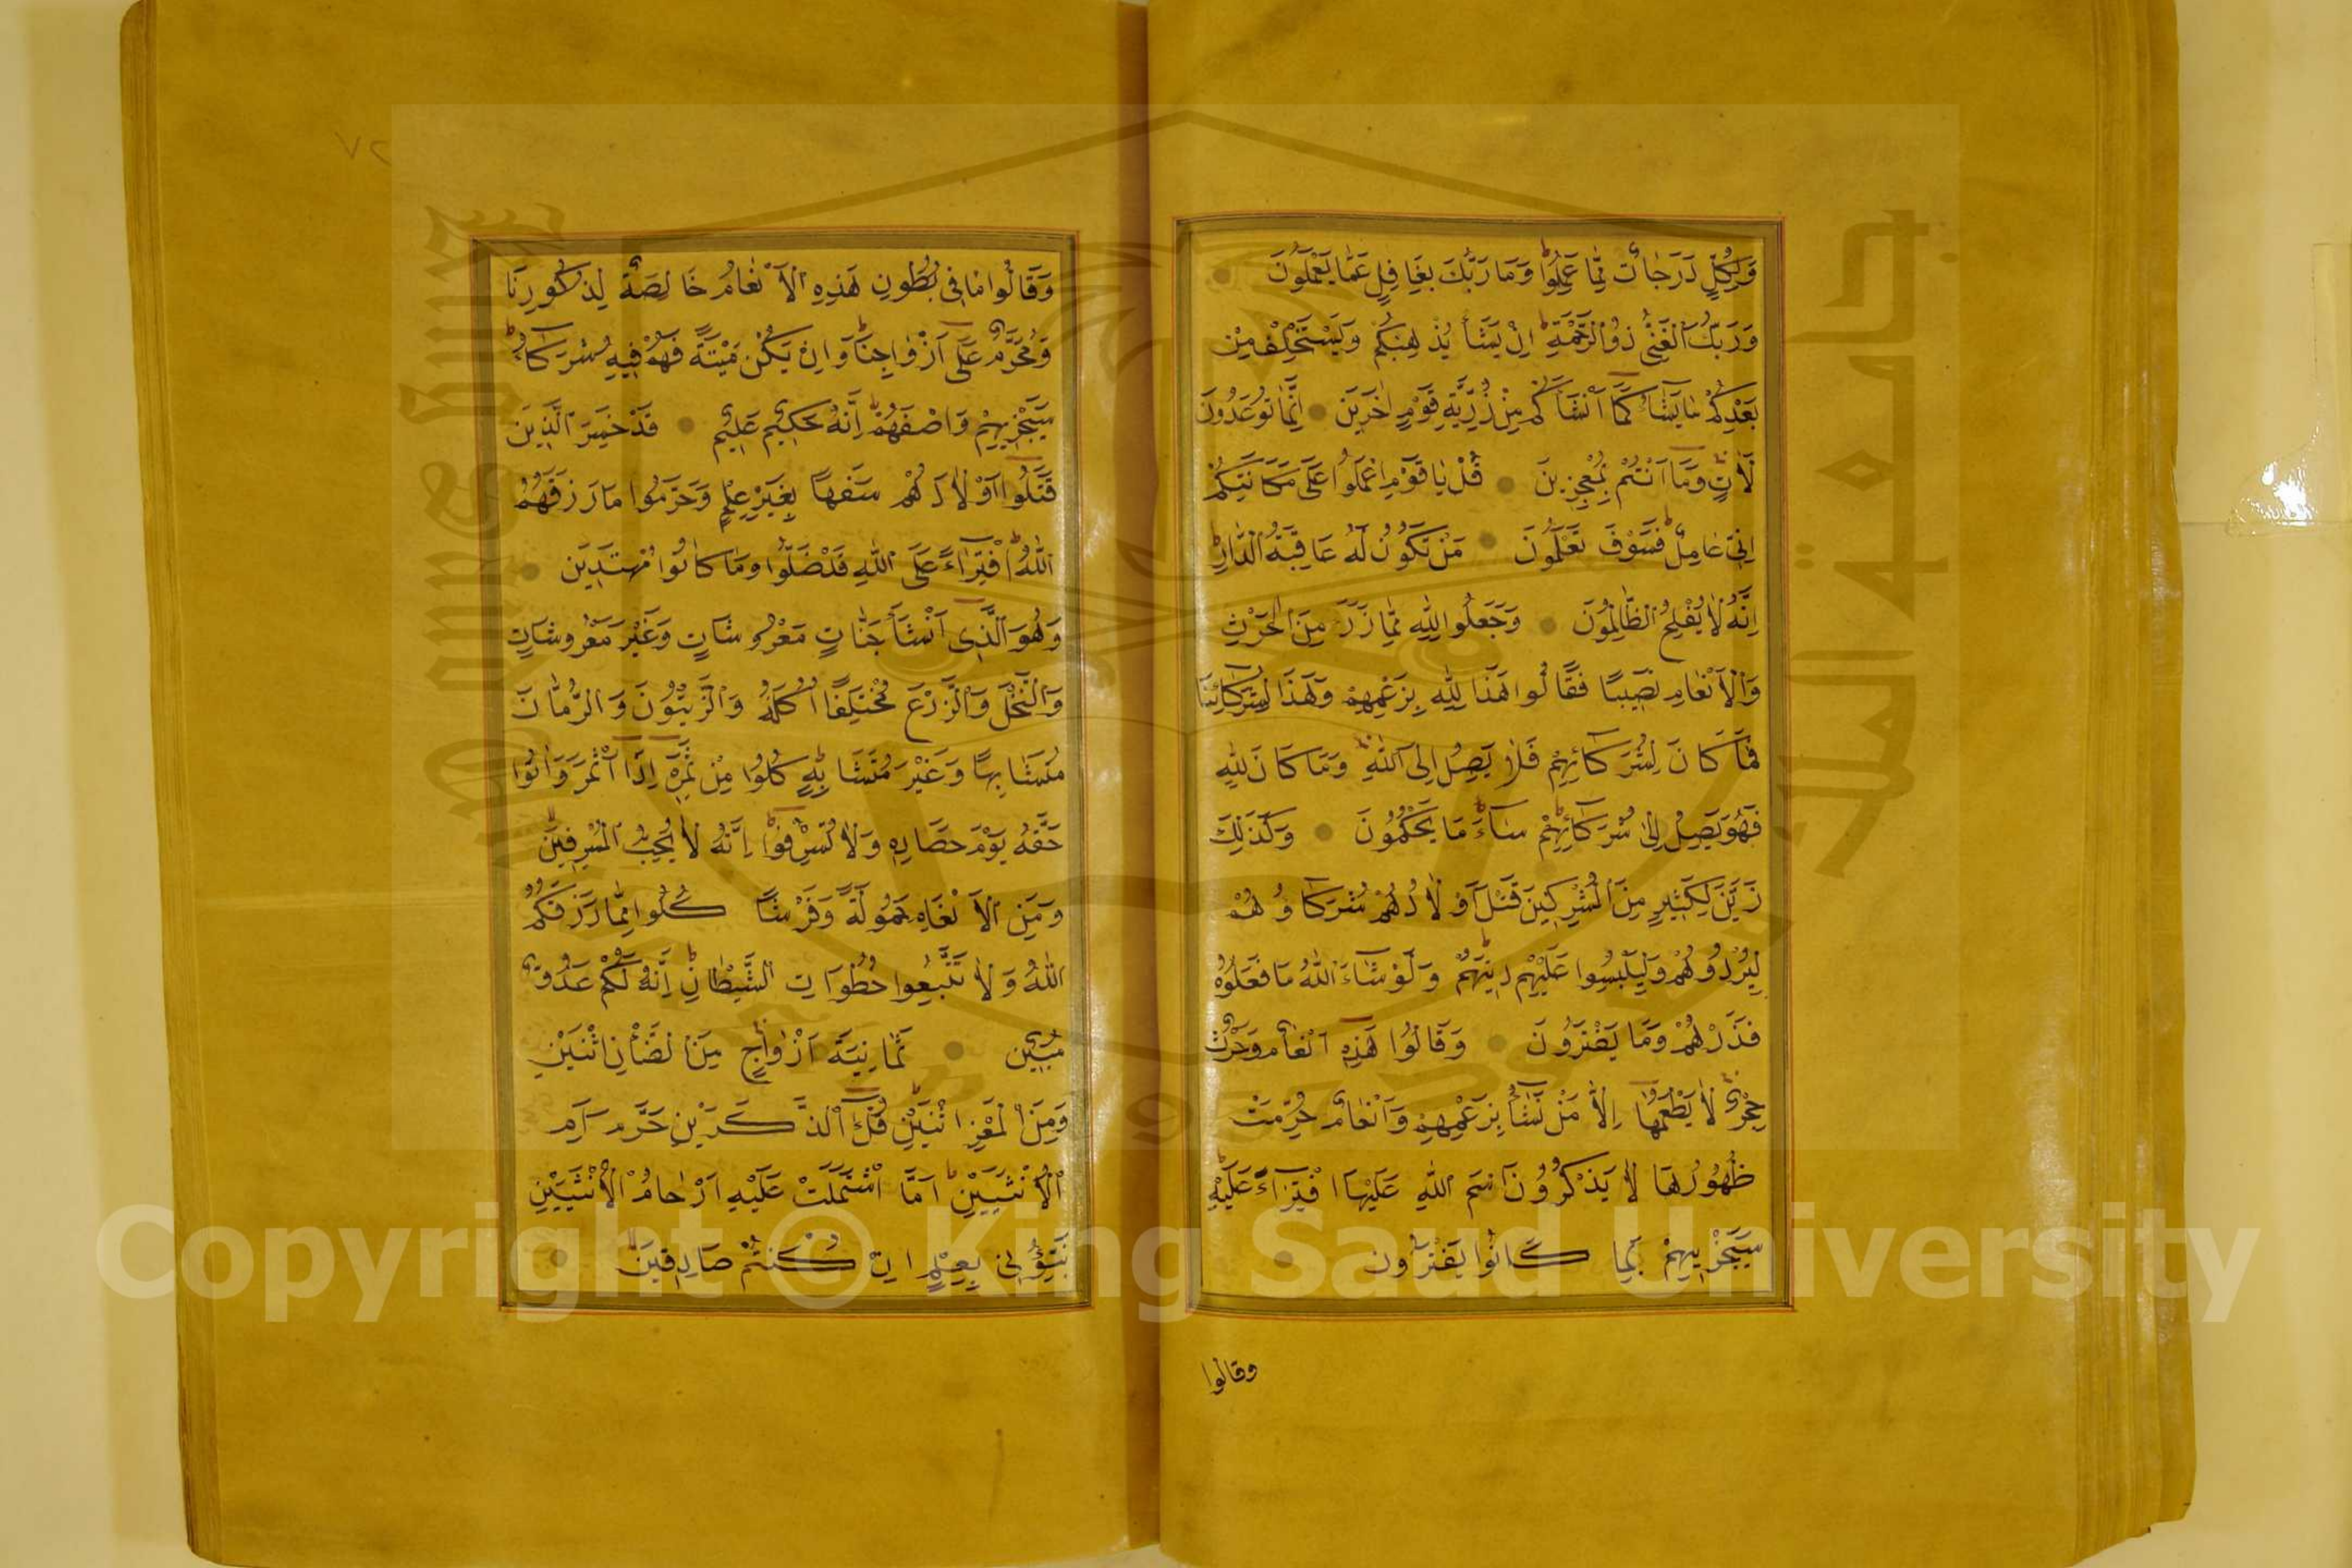 وَلِكُلٍّ دَرَجَاتٌ مِمَّا عَمِلُوا وَمَا رَبُّكَ بِغَافِلٍ عَمَّا يَعْمَلُونَ
وَرَبُّكَ الْغَنِيُّ ذُو الرَّحْمَةِ اِنْ يَشَأْ يُذْهِبْكُمْ وَيَسْتَخْلِفْ مِنْ
بَعْدِكُمْ مَا يَشَاءُ كَمَا اَنْشَاَكُمْ مِنْ ذُرِّيَّةِ قَوْمٍ اٰخَرِينَ اِنَّمَا تُوعَدُونَ
لَاٰتٍ وَمَا اَنْتُمْ بِمُعْجِزِينَ قُلْ يَا قَوْمِ اعْمَلُوا عَلَى مَكَانَتِكُمْ
اِنِّي عَامِلٌ فَسَوْفَ تَعْلَمُونَ مَنْ تَكُونُ لَهُ عَاقِبَةُ الدَّارِ
اِنَّهُ لَا يُفْلِحُ الظَّالِمُونَ وَجَعَلُوا لِلّٰهِ مِمَّا ذَرَأَ مِنَ الْحَرْثِ
وَالْاَنْعَامِ نَصِيبًا فَقَالُوا هَذَا لِلّٰهِ بِزَعْمِهِمْ وَهَذَا لِشُرَكَائِنَا
فَمَا كَانَ لِشُرَكَائِهِمْ فَلَا يَصِلُ اِلَى اللّٰهِ وَمَا كَانَ لِلّٰهِ
فَهُوَ يَصِلُ اِلَى شُرَكَائِهِمْ سَاءَ مَا يَحْكُمُونَ وَكَذَلِكَ
زَيَّنَ لِكَثِيرٍ مِنَ الْمُشْرِكِينَ قَتْلَ اَوْلَادِهِمْ شُرَكَاؤُهُمْ
لِيُرْدُوهُمْ وَلِيَلْبِسُوا عَلَيْهِمْ دِينَهُمْ وَلَوْ شَاءَ اللّٰهُ مَا فَعَلُوهُ
فَذَرْهُمْ وَمَا يَفْتَرُونَ وَقَالُوا هَذِهِ اَنْعَامٌ وَحَرْثٌ
حِجْرٌ لَا يَطْعَمُهَا اِلَّا مَنْ نَشَاءُ بِزَعْمِهِمْ وَاَنْعَامٌ حُرِّمَتْ
ظُهُورُهَا لَا يَذْكُرُونَ اسْمَ اللّٰهِ عَلَيْهَا افْتِرَاءً عَلَيْهِ
سَيَجْزِيهِمْ بِمَا كَانُوا يَفْتَرُونَ
وقالوا
٧٢
وَقَالُوا مَا فِي بُطُونِ هَذِهِ الْاَنْعَامِ خَالِصَةٌ لِذُكُورِنَا
وَمُحَرَّمٌ عَلَى اَزْوَاجِنَا وَاِنْ يَكُنْ مَيْتَةً فَهُمْ فِيهِ شُرَكَاءُ
سَيَجْزِيهِمْ وَصْفَهُمْ اِنَّهُ حَكِيمٌ عَلِيمٌ قَدْ خَسِرَ الَّذِينَ
قَتَلُوا اَوْلَادَهُمْ سَفَهًا بِغَيْرِ عِلْمٍ وَحَرَّمُوا مَا رَزَقَهُمُ
اللّٰهُ افْتِرَاءً عَلَى اللّٰهِ قَدْ ضَلُّوا وَمَا كَانُوا مُهْتَدِينَ
وَهُوَ الَّذِي اَنْشَأَ جَنَّاتٍ مَعْرُوشَاتٍ وَغَيْرَ مَعْرُوشَاتٍ
وَالنَّخْلَ وَالزَّرْعَ مُخْتَلِفًا اُكُلُهُ وَالزَّيْتُونَ وَالرُّمَّانَ
مُتَشَابِهًا وَغَيْرَ مُتَشَابِهٍ كُلُوا مِنْ ثَمَرِهِ اِذَا اَثْمَرَ وَاٰتُوا
حَقَّهُ يَوْمَ حَصَادِهِ وَلَا تُسْرِفُوا اِنَّهُ لَا يُحِبُّ الْمُسْرِفِينَ
وَمِنَ الْاَنْعَامِ حَمُولَةً وَفَرْشًا كُلُوا مِمَّا رَزَقَكُمُ
اللّٰهُ وَلَا تَتَّبِعُوا خُطُوَاتِ الشَّيْطَانِ اِنَّهُ لَكُمْ عَدُوٌّ
مُبِينٌ ثَمَانِيَةَ اَزْوَاجٍ مِنَ الضَّأْنِ اثْنَيْنِ
وَمِنَ الْمَعْزِ اثْنَيْنِ قُلْ آلذَّكَرَيْنِ حَرَّمَ اَمِ
الْاُنْثَيَيْنِ اَمَّا اشْتَمَلَتْ عَلَيْهِ اَرْحَامُ الْاُنْثَيَيْنِ
نَبِّئُونِي بِعِلْمٍ اِنْ كُنْتُمْ صَادِقِينَ
جامعة الملك سعود
King Saud University
Copyright © King Saud University